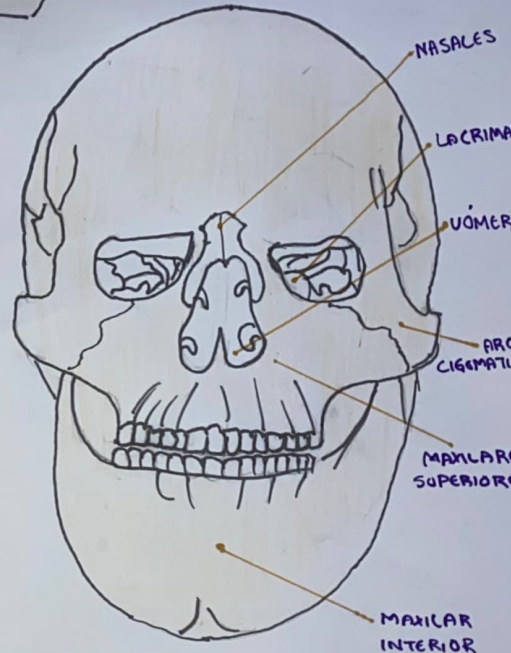 NASALES
LACRIMA
VÓMER
ARC
CIGOMATI
MAXILARE
SUPERIORE
MAXILAR
INTERIOR